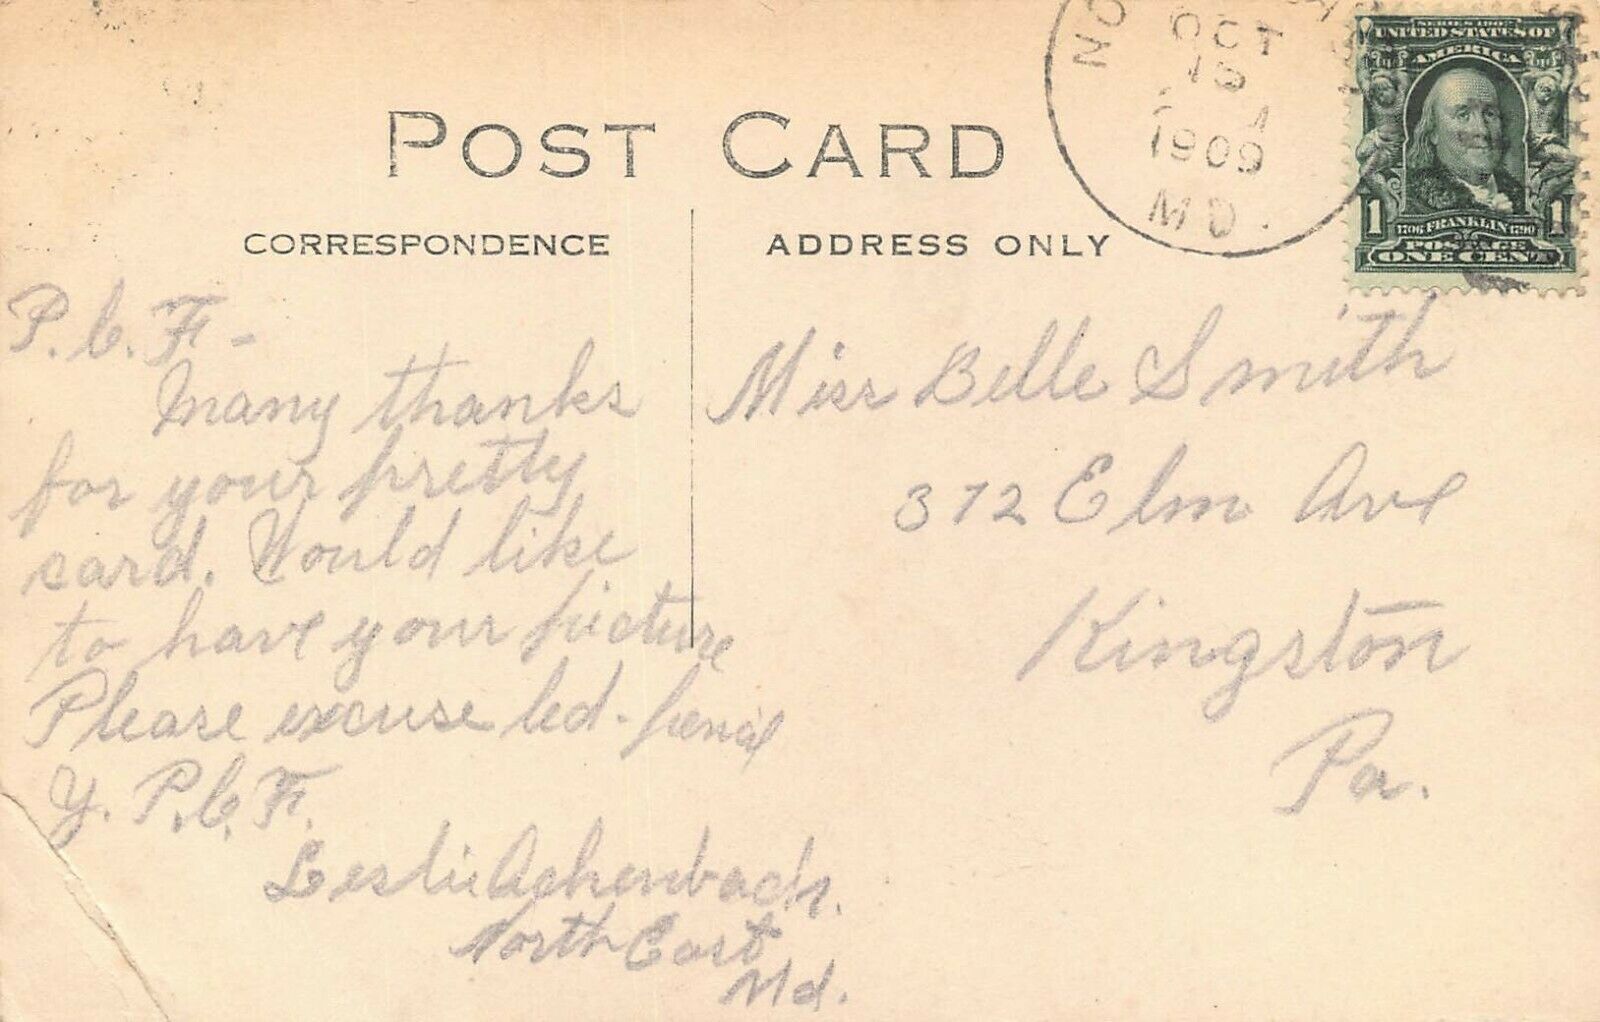 POST CARD
CORRESPONDENCE
ADDRESS ONLY
OCT
1909
MD.
SERIES 1902
UNITED STATES OF
AMERICA
1 1706 FRANKLIN 1790 1
POSTAGE
ONE CENT
P.C.F. -
Many thanks
for your pretty
card. Would like
to have your picture
Please excuse led-pencil
Y. P.C.F.
Leslie Achenbach.
North East
Md.
Miss Belle Smith
372 Elm Ave
Kingston
Pa.